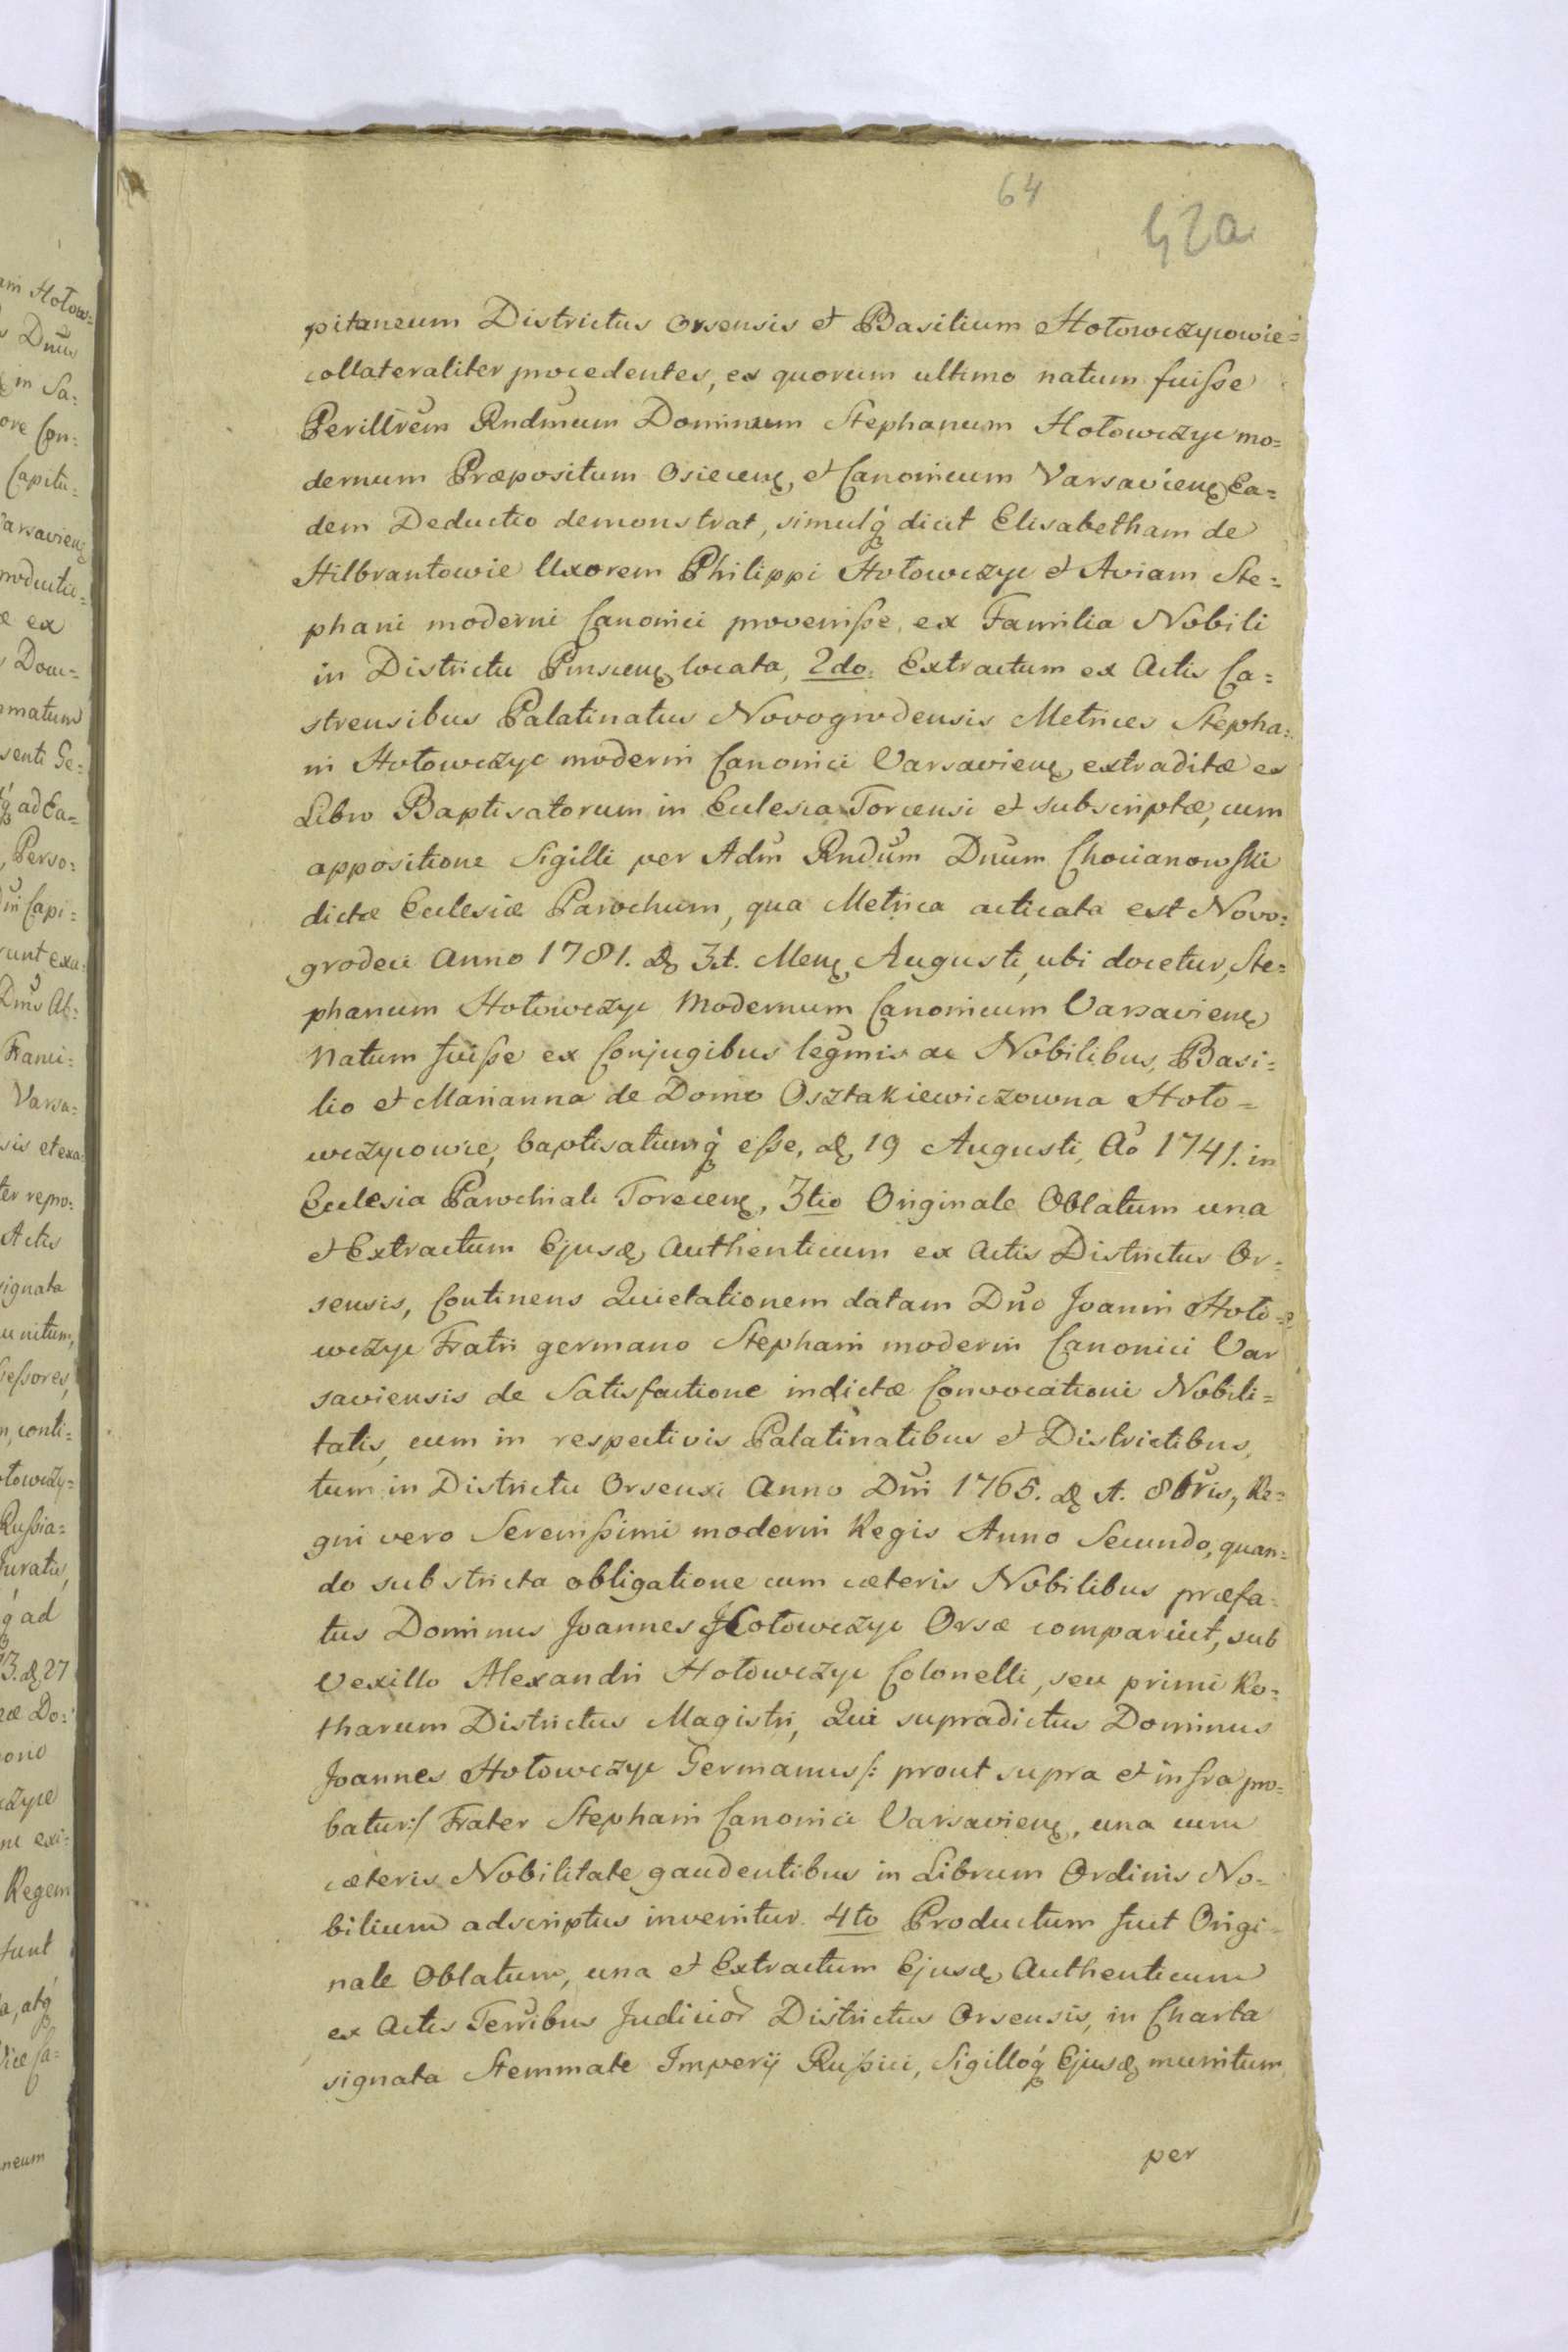 64
42a
pitaneum Districtus Orsensis et Basilium Hołowczycowie=
collateraliter procedentes, ex quorum ultimo natum fuiſse
Perillrem Rndmum Dominum Stephanum Hołowczyc mo=
dernum Præpositum Osiecens, et Canonicum Varsaviens Ea=
dem Deductio demonstrat, simulq́ dicit Elisabetham de
Hilbrantowie Uxorem Philippi Hołowczyc et Aviam Ste=
phani moderni Canonici proveniſse, ex Familia Nobili
in Districtu Pinscens locata, 2do. Extractum ex Actis Ca=
strensibus Palatinatus Novogrodensis Metrices Stepha=
ni Hołowczyc moderni Canonici Varsaviens, extraditæ ex
Libro Baptisatorum in Eclesia Torcensi et subscriptæ, cum
appositione Sigilli per Adm Rndum Dnum Chocianowſki
dictæ Eclesiæ Parochum, qua Metrica acticata est Novo=
grodeci Anno 1781. d 31. Mens Augusti, ubi docetur, Ste=
phanum Hołowczyc Modernum Canonicum Varsaviens
Natum fuiſse ex Conjugibus legmis ac Nobilibus, Basi=
lio et Marianna de Domo Osztakiewiczowna Hoło=
wczycowie, baptisatumq́ eſse, d, 19 Augusti, Aõ 1741. in
Eclesia Parochiali Torecens, 3tio Originale Oblatum una
et Extractum Ejusd, Authenticum ex Actis Districtus Or=
sensis, Continens Quietationem datam Dño Joanni Hoło=
wczyc Fratri germano Stephani moderni Canonici Var
saviensis de Satisfactione indictæ Convocationi Nobili=
tatis, cum in respectivis Palatinatibus et Districtibus,
tum in Districtu Orsensi Anno Dni 1765. d 1. 8bris, Re=
gni vero Sereniſsimi moderni Regis Anno Secundo, quan=
do sub stricta obligatione cum cæteris Nobilibus præfa=
tus Dominus Joannes Hołowczyc Orsæ comparuit, sub
Vexillo Alexandri Hołowczyc Colonelli, seu primi Ro=
tharum Districtus Magistri, Qui supradictus Dominus
Joannes Hołowczyc Germanus /: prout supra et infra pro=
batur:/ Frater Stephani Canonici Varsaviens, una cum
cæteris Nobilitate gaudentibus in Librum Ordinis No=
bilium adscriptus invenitur. 4to Productum fuit Origi=
nale Oblatum, una et Extractum Ejusd, Authenticum
ex Actis Terribus Judicior Districtus Orsensis, in Charta
signata Stemmate Imperij Ruſsici, Sigilloq́ Ejusd munitum,
per